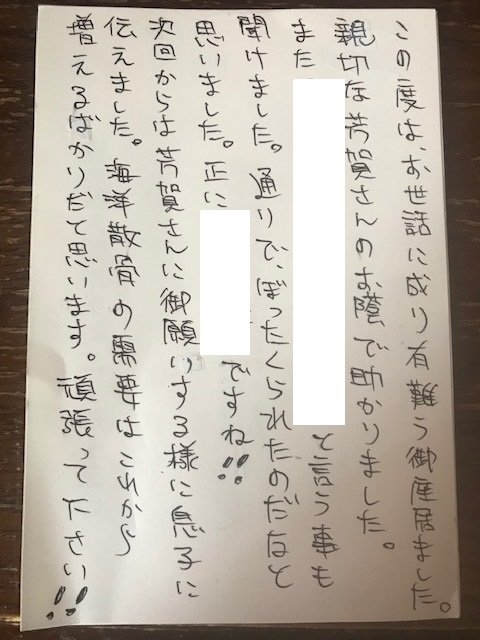 この度は、お世話に成り有難う御座居ました。
親切な芳賀さんのお蔭で助かりました。
また と言う事も
聞けました。通りで、ぼったくられたのだなと
思いました。正に ですね!!
次回からは芳賀さんに御願いする様に息子に
伝えました。海洋散骨の需要はこれから
増えるばかりだと思います。頑張って下さい!!